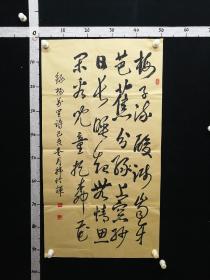 梅子流酸溅齿牙
芭蕉分绿上窗纱
日长睡起无情思
闲看儿童捉柳花
杨万里诗己亥春月